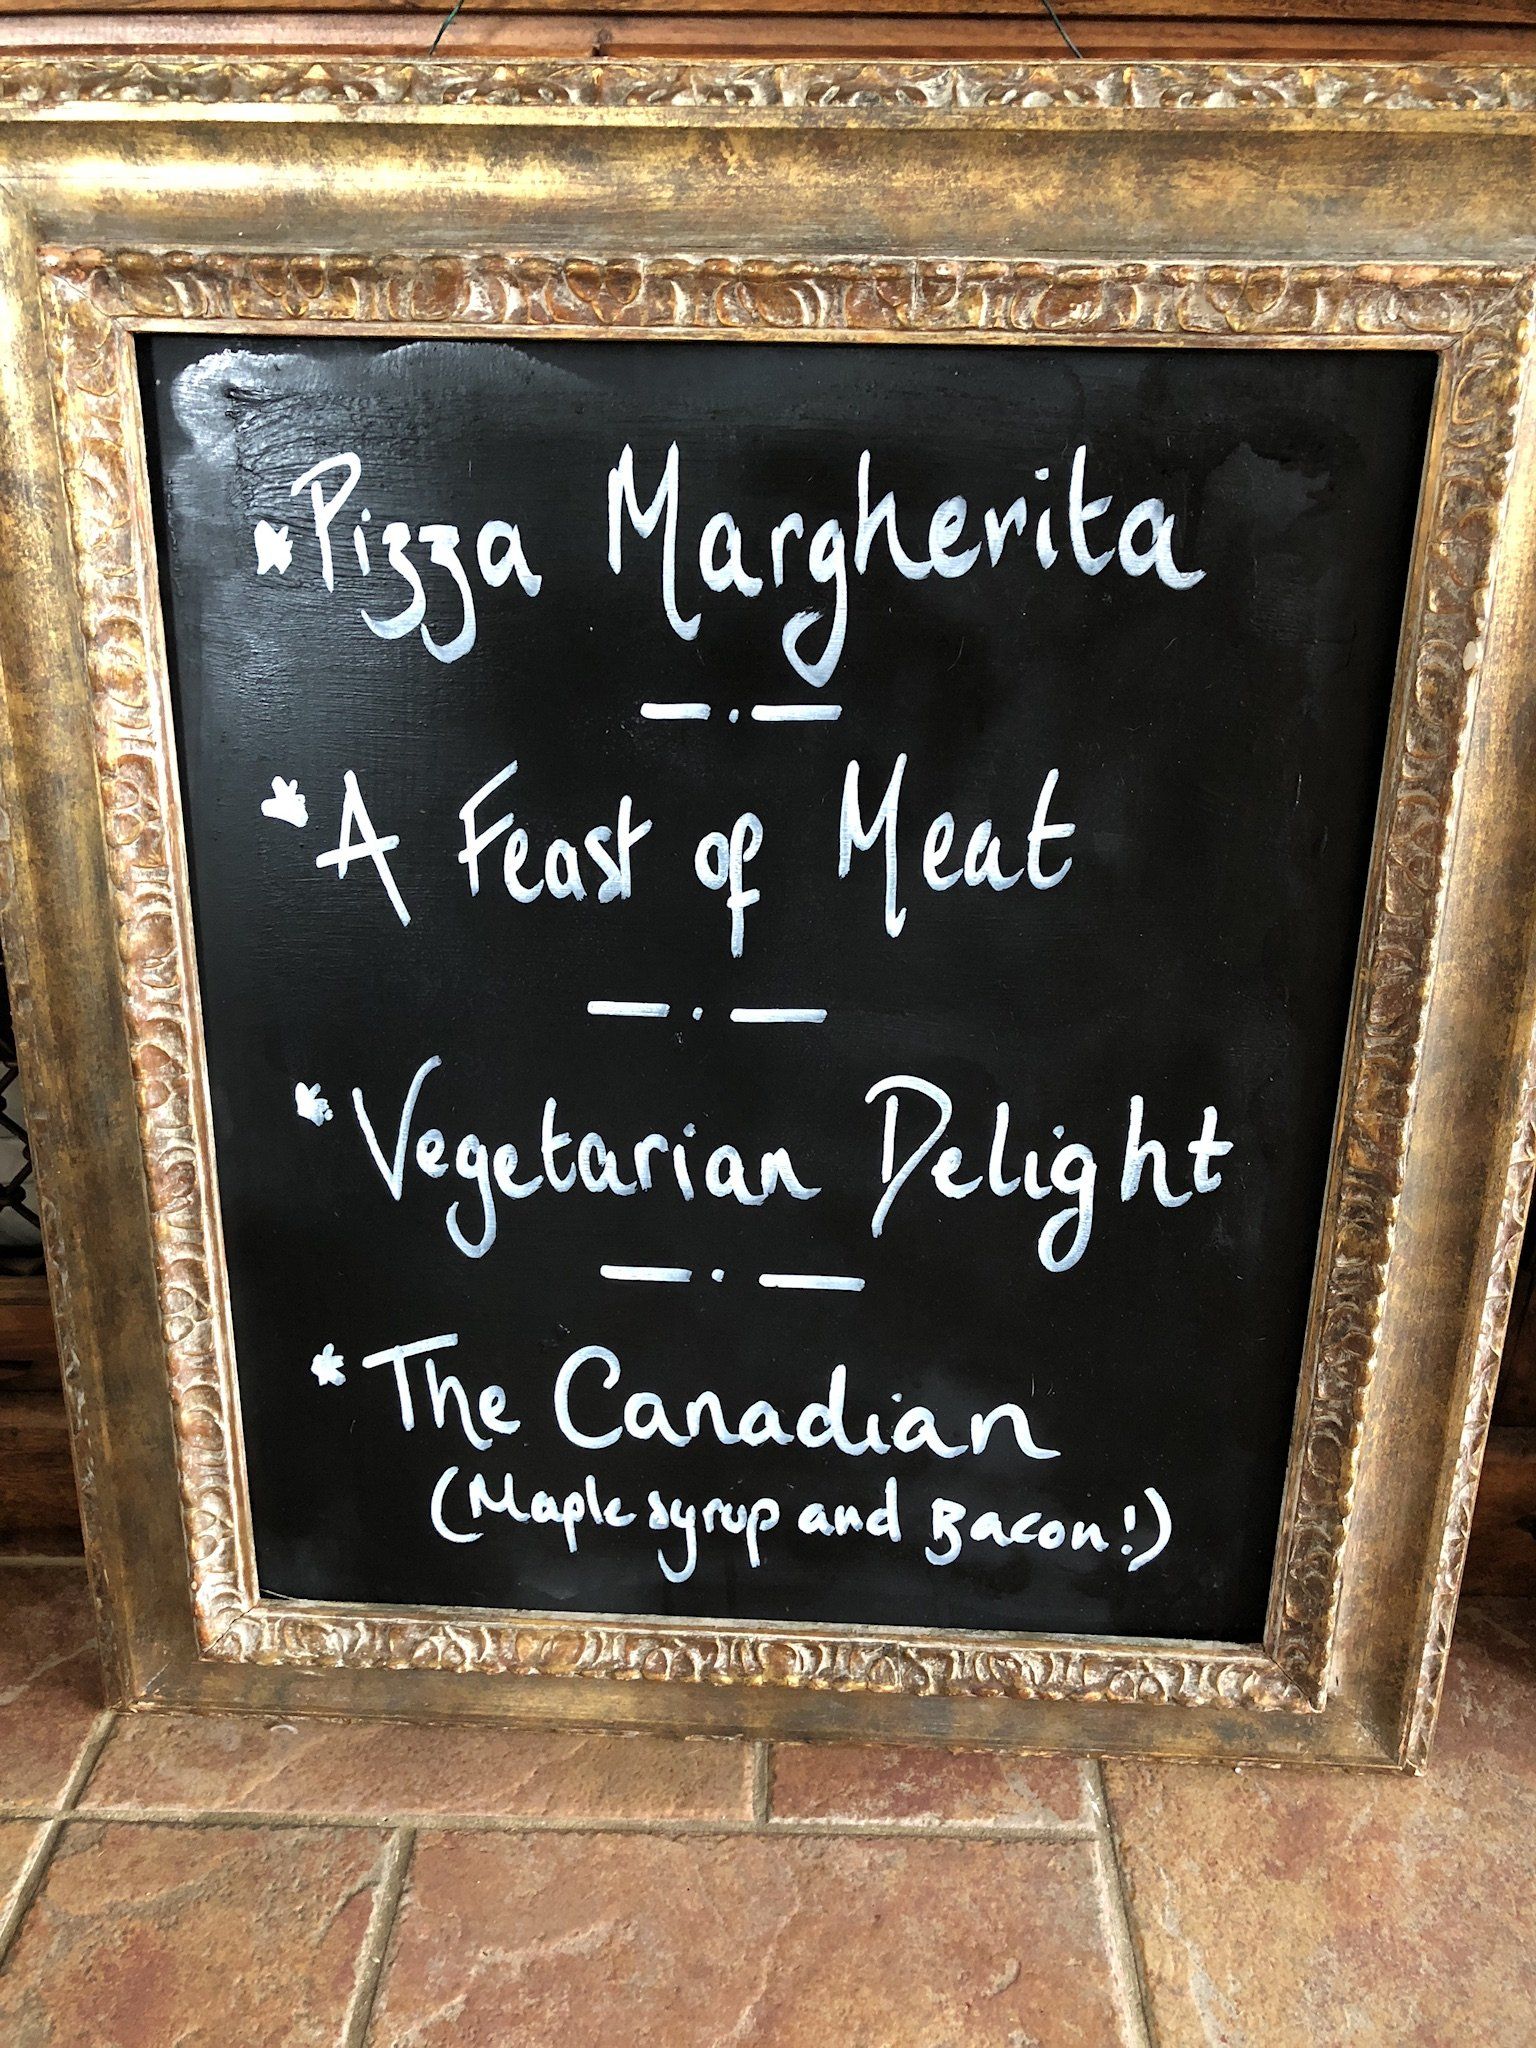 * Pizza Margherita
— . —
* A Feast of Meat
— . —
* Vegetarian Delight
— . —
* The Canadian
(Maple syrup and Bacon!)